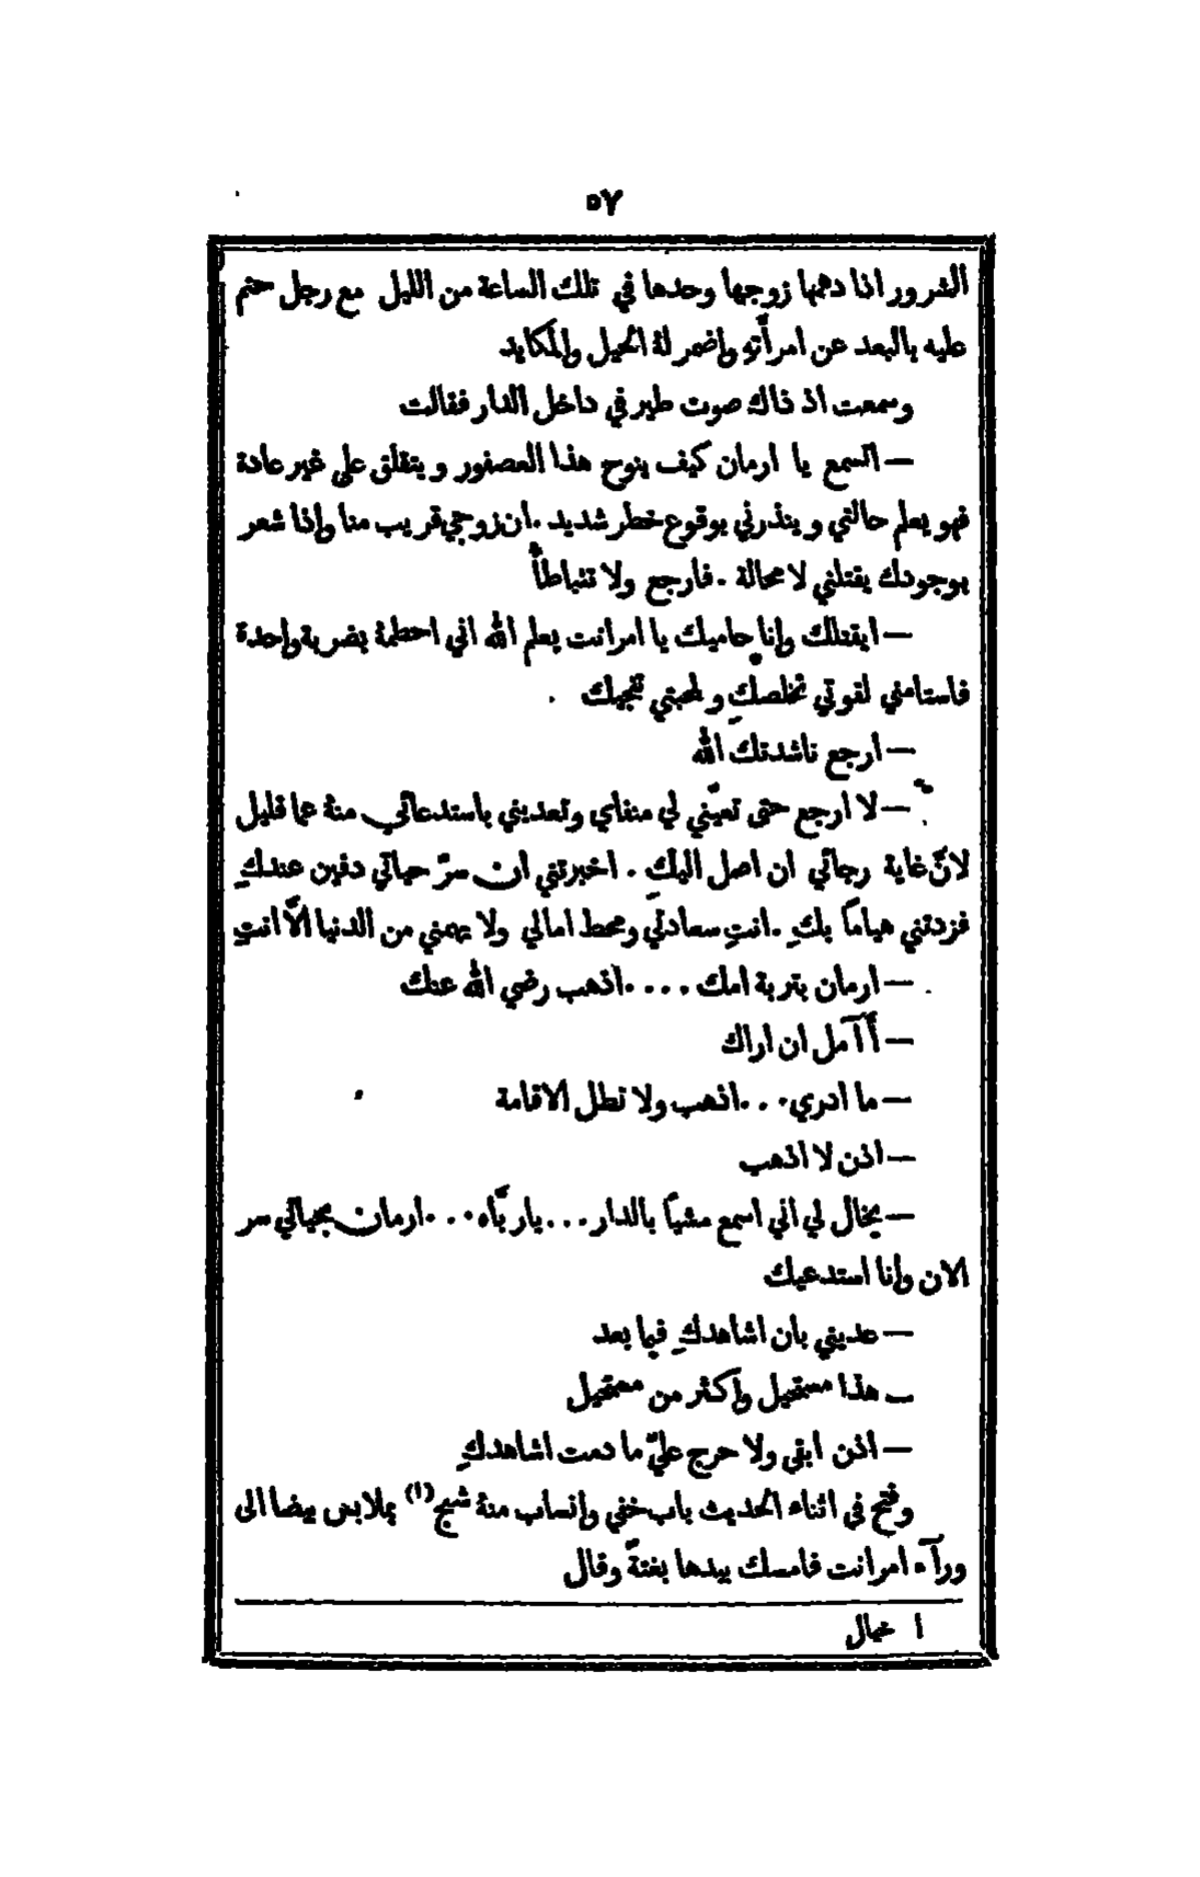 ٥٧
الشرور اذا دهمها زوجها وحدها في تلك الساعة من الليل مع رجل حتم
عليه بالبعد عن امرأتهِ واضمر لهُ الحيل والمكايد
وسمعت اذ ذاك صوت طير في داخل الدار فقالت
— اتسمع يا ارمان كيف ينوح هذا العصفور ويتقلق على غير عادة
فهو يعلم حالتي وينذرني بوقوع خطر شديد . ان زوجي قريب منا واذا شعر
بوجودك يقتلني لا محالة . فارجع ولا تتباطأْ
— ايقتلك وانا حاميك يا امرانت يعلم الله اني احطمهُ بضربة واحدة
فاستامني لقوتي تخلصكِ ولمحبتي تنجيك
— ارجع ناشدتك الله
— لا ارجع حتى تعيّني لي منفاي وتعديني باستدعائي منهُ عما قليل
لانّ غاية رجائي ان اصل اليكِ . اخبرتني ان سرّ حياتي دفين عندكِ
فزدتني هيامًا بكِ . انتِ سعادتي ومحط امالي ولا يهمني من الدنيا الّا انتِ
— ارمان بتربة امك . . . . اذهب رضي الله عنك
— أآمل ان اراك
— ما ادري . . . اذهب ولا تطل الاقامة
— اذن لا اذهب
— يخال لي اني اسمع مشيًا بالدار . . . يا ربَّاه . . . . ارمان بحياتي سر
الان وانا استدعيك
— عديني بان اشاهدكِ فيما بعد
— هذا مستحيل واكثر من مستحيل
— اذن ابقى ولا حرج عليّ ما دمت اشاهدكِ
وفتح في اثناء الحديث باب خفي وانساب منهُ شبح (١) بملابس بيضا الى
ورآء امرانت فامسك بيدها بغتةً وقال
١ خيال